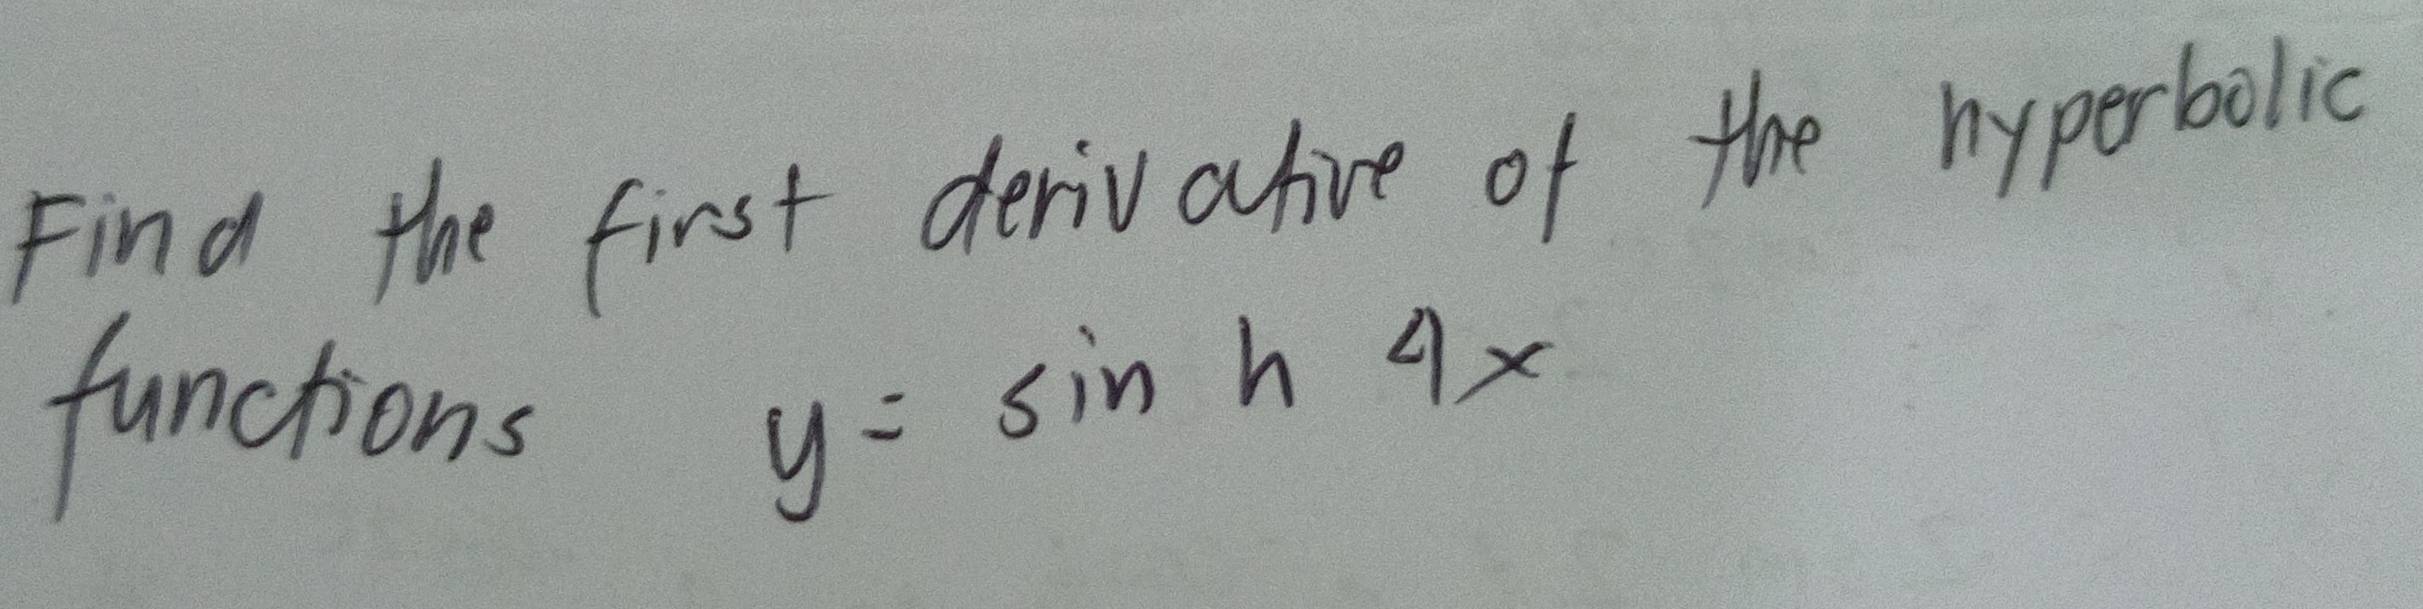 Find the first derivative of the hyperbolic
functions y = sin h 4x